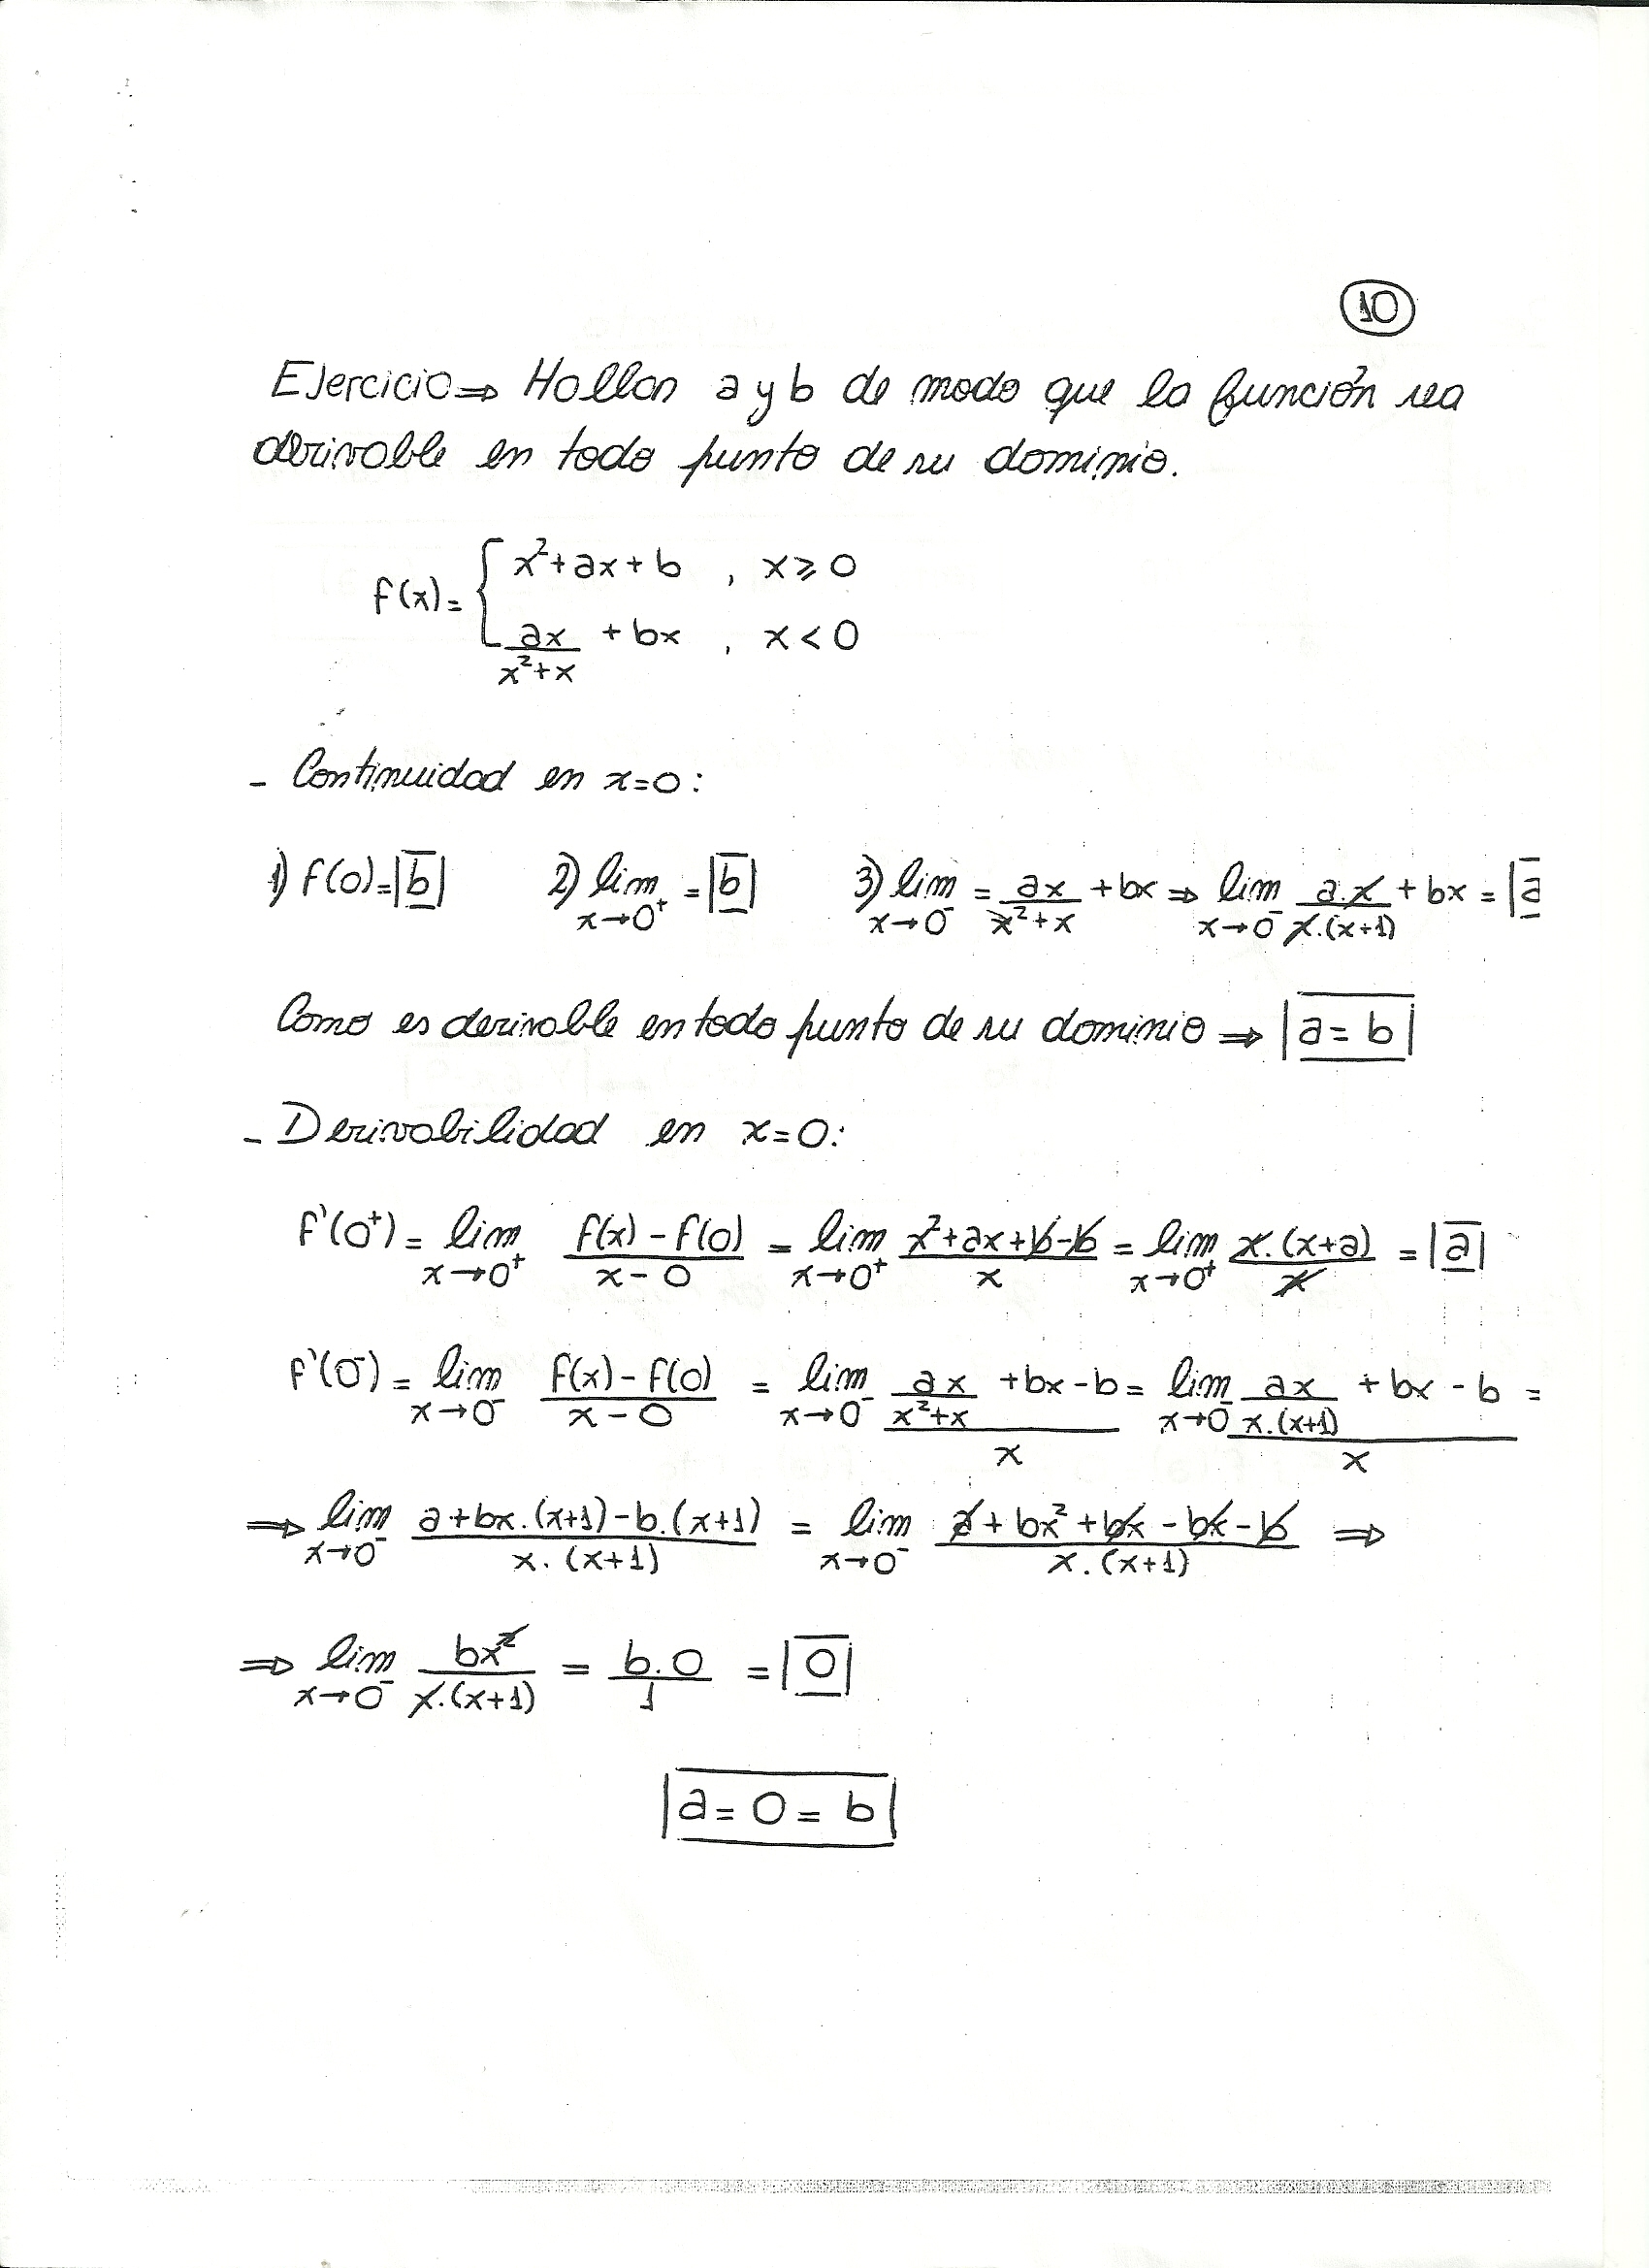 10
Ejercicio⇒ Hallan a y b de modo que la función sea
derivable en todo punto de su dominio.
f(x)= { x²+ax+b , x≥0
ax/(x²+x) + bx , x<0
- Continuidad en x=0:
1) f(0)=|b| 2) lim x→0⁺ =|b| 3) lim x→0⁻ = ax/(x²+x) +bx ⇒ lim x→0⁻ a.x/(x.(x+1)) + bx = |a
Como es derivable en todo punto de su dominio ⇒ |a= b|
- Derivabilidad en x=0:
f'(0⁺) = lim x→0⁺ (f(x) - f(0))/(x - 0) = lim x→0⁺ (x²+ax+b-b)/x = lim x→0⁺ (x.(x+a))/x = |a|
f'(0⁻) = lim x→0⁻ (f(x) - f(0))/(x - 0) = lim x→0⁻ (ax/(x²+x) +bx - b)/x = lim x→0⁻ (ax/(x.(x+1)) + bx - b)/x =
⇒ lim x→0⁻ (a+bx.(x+1)-b.(x+1))/(x.(x+1)) = lim x→0⁻ (a+bx²+bx-bx-b)/(x.(x+1)) ⇒
⇒ lim x→0⁻ bx²/(x.(x+1)) = b.0/1 = |0|
|a= 0 = b|